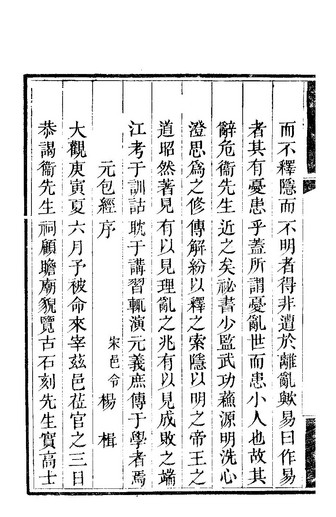 而不釋隱而不明者得非遭於離亂歟易曰作易
者其有憂患乎蓋所謂憂亂世而患小人也故其
辭危衞先生近之矣祕書少監武功蘇源明洗心
澄思爲之修傳解紛以釋之索隱以明之帝王之
道昭然著見有以見理亂之兆有以見成敗之端
江考于訓詁耽于講習輒演元義庶傳于學者焉
元包經序
宋邑令楊楫
大觀庚寅夏六月予被命來宰玆邑莅官之三日
恭謁衞先生祠顧瞻廟貌覽古石刻先生實高士